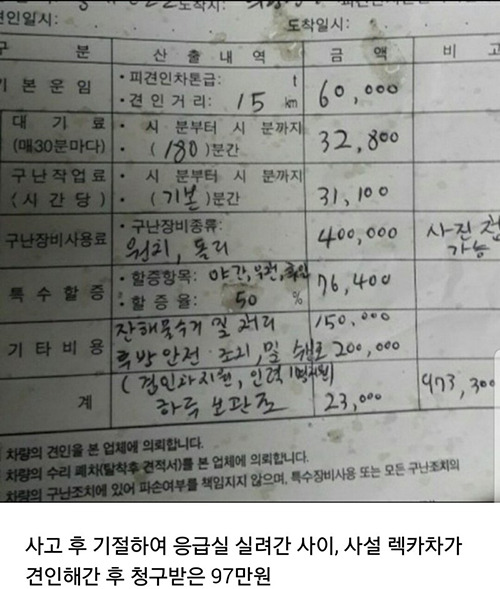 견인일시:
도착일시:
구 분 산 출 내 역 금 액 비 고
기 본 운 임 • 피견인차톤급: t 60,000
• 견 인 거 리: 15 km
대 기 료 • 시 분부터 시 분까지 32,800
(매30분마다) • (180)분간
구난작업료 • 시 분부터 시 분까지 31,100
(시 간 당) • (기본)분간
구난장비사용료 • 구난장비종류: 400,000 사진 첨
윈치, 돌리 가능
특 수 할 증 • 할증항목: 야간, 우천, 휴일 76,400
• 할 증 율: 50 %
기 타 비 용 잔해물수거 및 처리 150,000
후방 안전조치, 및 200,000
(견인차지원, 인력1명지원)
계 하루 보관료 23,000 973,300
차량의 견인을 본 업체에 의뢰합니다.
차량의 수리 폐차(탈착후 견적서)를 본 업체에 의뢰합니다.
차량의 구난조치에 있어 파손여부를 책임지지 않으며, 특수장비사용 또는 모든 구난조치의
사고 후 기절하여 응급실 실려간 사이, 사설 렉카차가
견인해간 후 청구받은 97만원